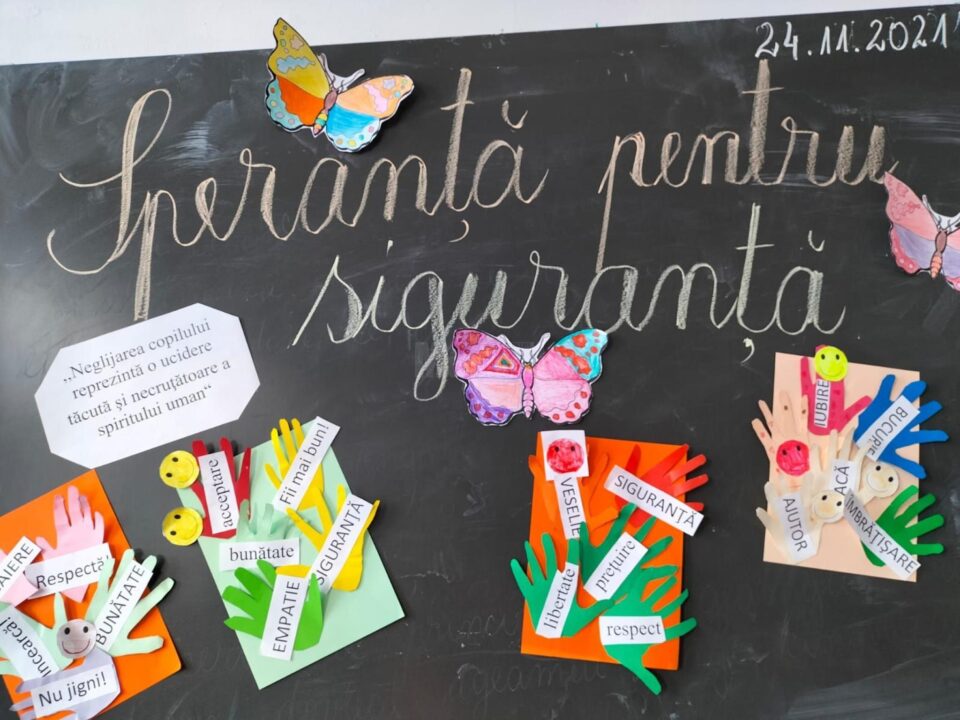 24.11.2021
Speranță pentru
siguranță
„Neglijarea copilului
reprezintă o ucidere
tăcută şi necruţătoare a
spiritului uman“
Respectă!
BUNĂTATE
Incearcă!
Nu jigni!
acceptare
Fii mai bun!
bunătate
SIGURANȚĂ
EMPATIE
VESELIE
SIGURANȚĂ
libertate
prețuire
respect
IUBIRE
BUCURIE
AJUTOR
ÎMBRĂȚIȘARE